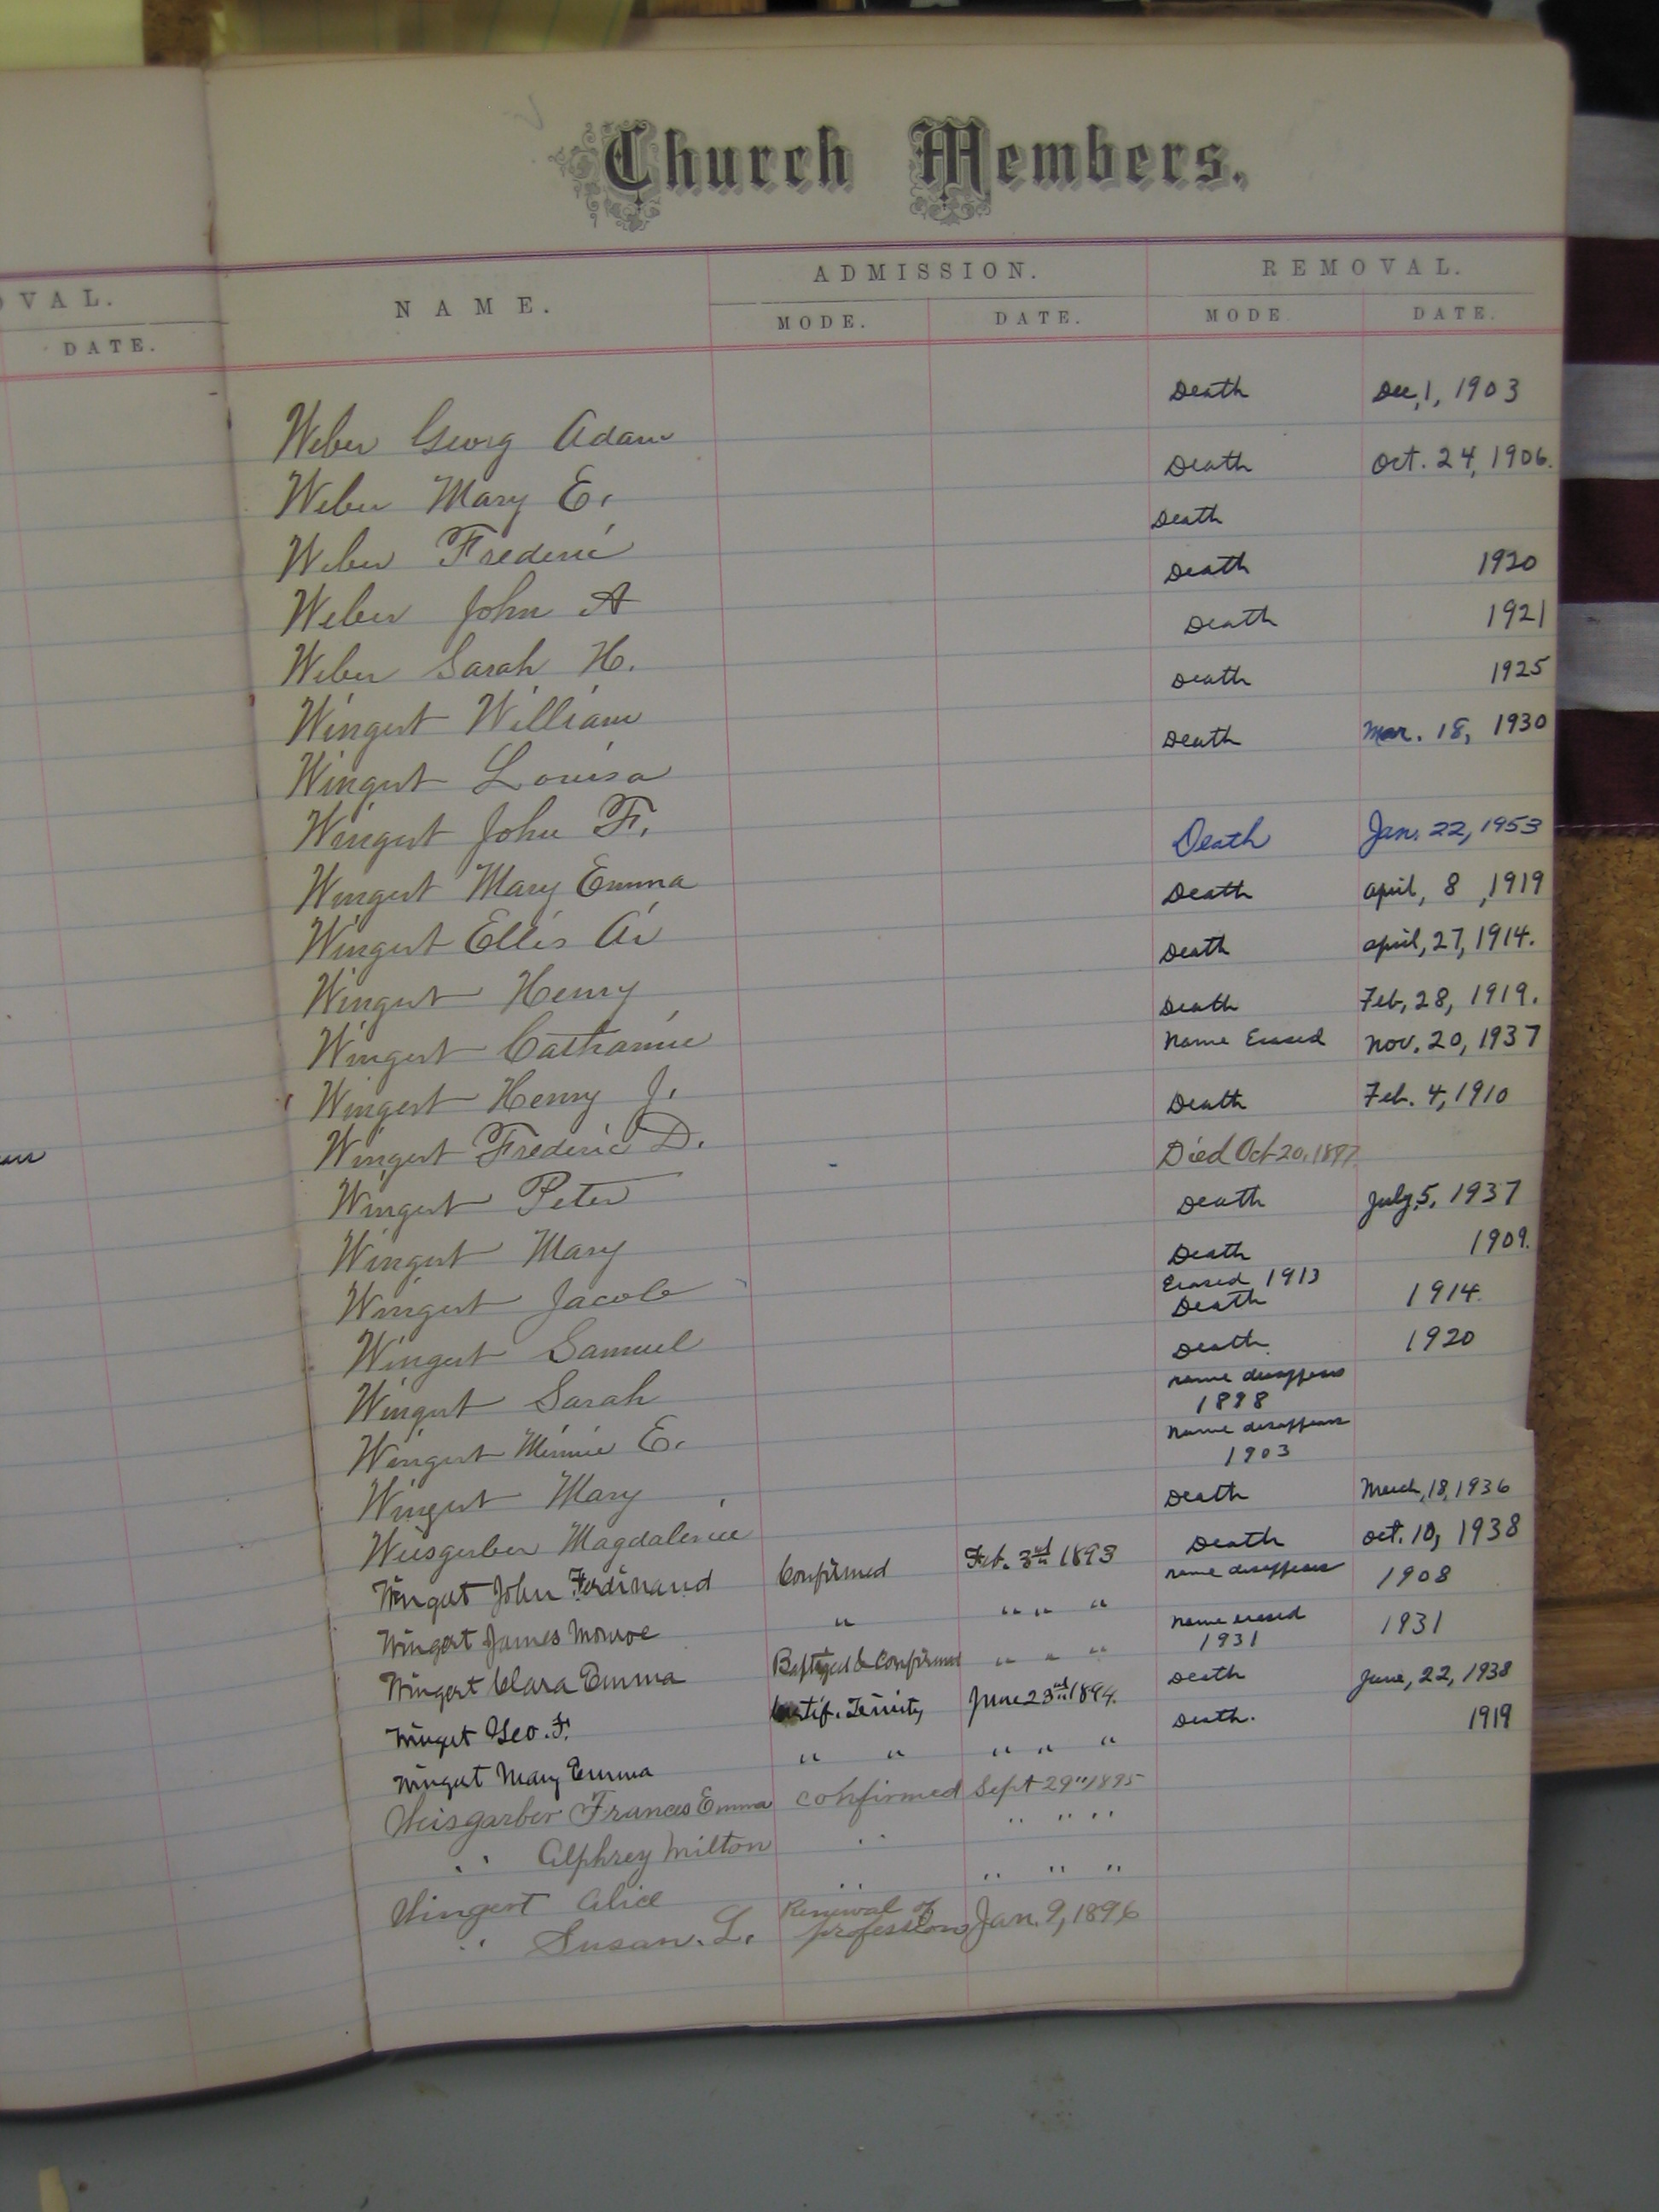 Church Members.
OVAL.
DATE.
NAME.
ADMISSION.
REMOVAL.
MODE.
DATE.
MODE
DATE.
Weber Georg Adam Death Dec, 1, 1903
Weber Mary E. Death Oct. 24, 1906.
Weber Frederic Death
Weber John A Death 1920
Weber Sarah H. Death 1921
Wingert William Death 1925
Wingert Louisa Death Mar. 18, 1930
Wingert John F.
Wingert Mary Emma Death Jan. 22, 1953
Wingert Ellis Death april, 8, 1919
Wingert Henry Death april, 27, 1914.
Wingert Catharine Death Feb, 28, 1919.
Wingert Henry J. Name Erased Nov. 20, 1937
Wingert Frederic D. Death Feb. 4, 1910
Wingert Peter Died Oct 20, 1897
Wingert Mary Death July, 5, 1937
Wingert Jacob Death 1909.
Erased 1913
Wingert Samuel Death 1914
Wingert Sarah Death 1920
Wingert Minnie E. name disappears
1898
Wingert Mary Name disappears
1903
Weisgerber Magdalene Death March, 18, 1936
Wingert John Ferdinand Confirmed Feb. 3rd 1893 Death oct. 10, 1938
Wingert James Monroe " " " " name disappears 1908
Wingert Clara Emma Baptized & Confirmed " " " Name erased 1931
1931
Wingert Geo. F. Certif. Trinity June 23rd 1894. Death June, 22, 1938
Wingert Mary Emma " " " " " Death. 1919
Weisgarber Frances Emma Confirmed Sept 29" 1895
" Alphrey Milton " " " "
Wingert Alice " " " "
" Susan. L. Renewal of
profession Jan. 9, 1896